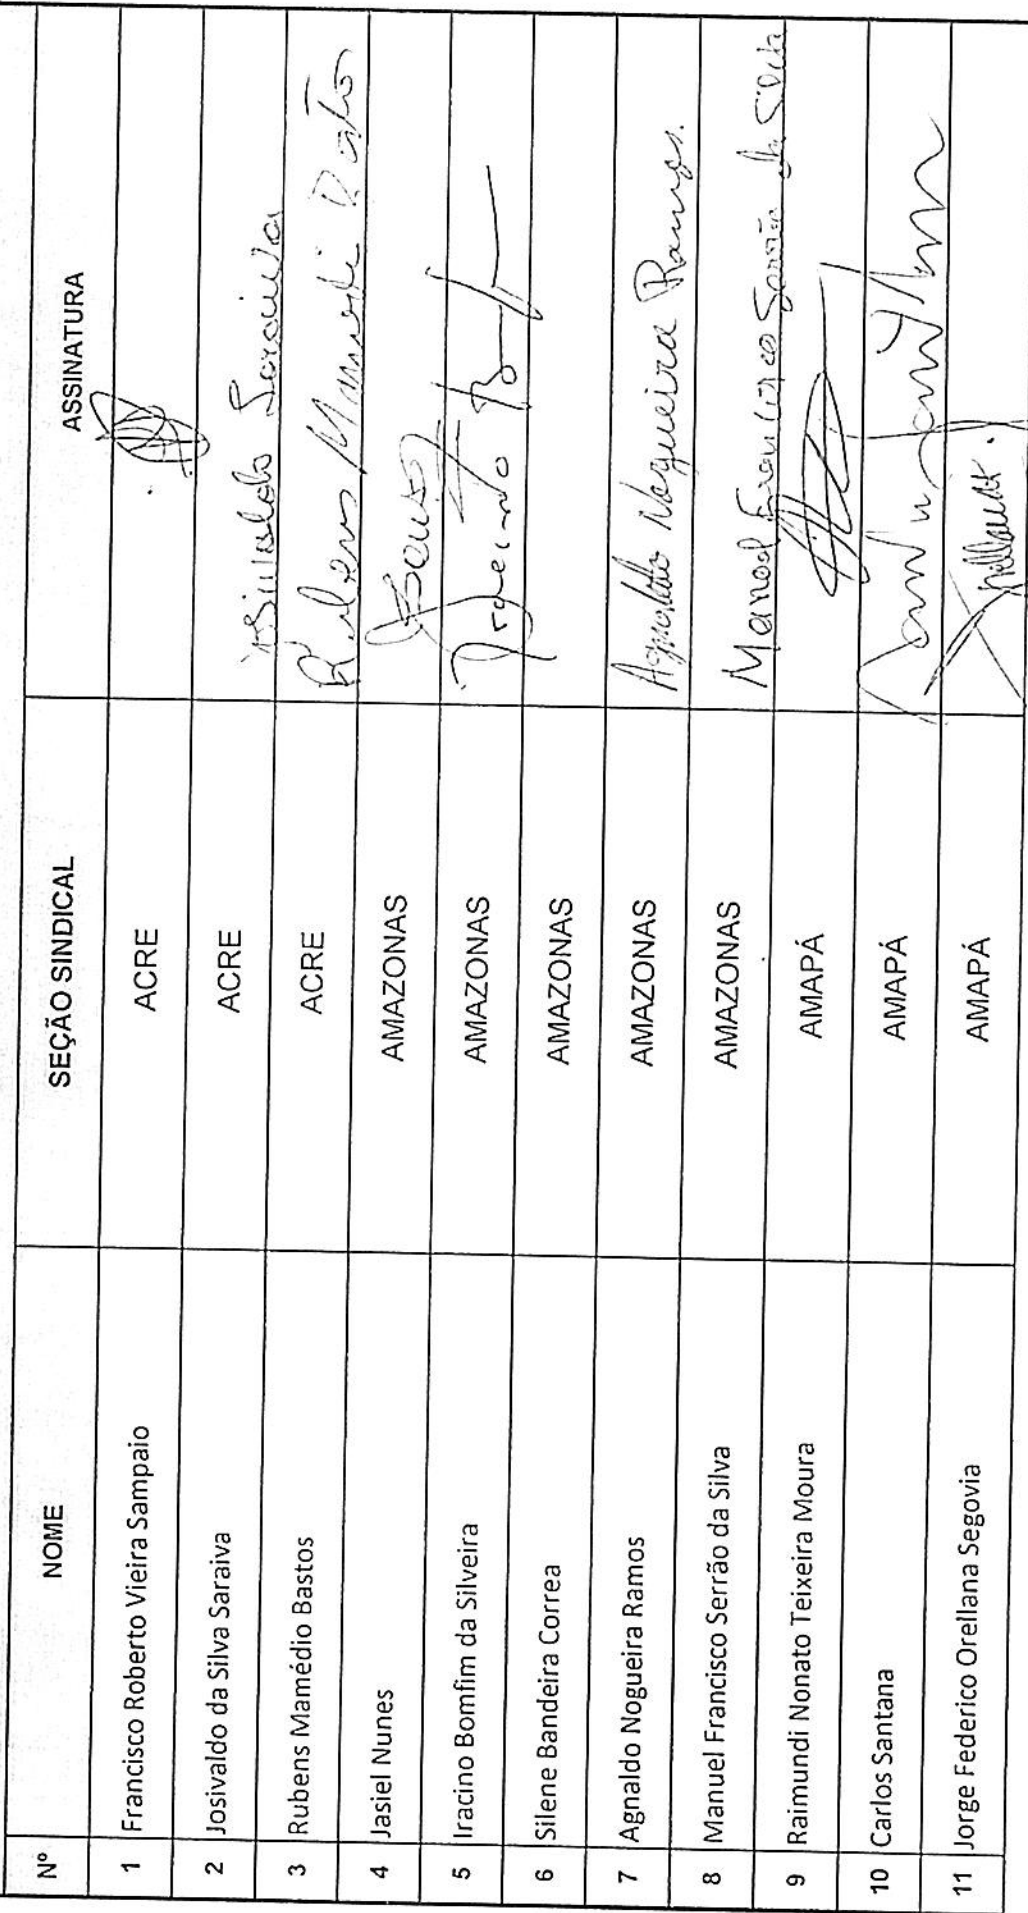 Nº NOME SEÇÃO SINDICAL ASSINATURA
1 Francisco Roberto Vieira Sampaio ACRE
2 Josivaldo da Silva Saraiva ACRE Josivaldo Saraiva
3 Rubens Mamédio Bastos ACRE Rubens
4 Jasiel Nunes AMAZONAS
5 Iracino Bomfim da Silveira AMAZONAS
6 Silene Bandeira Correa AMAZONAS
7 Agnaldo Nogueira Ramos AMAZONAS Agnaldo Nogueira Ramos.
8 Manuel Francisco Serrão da Silva AMAZONAS Manoel Francisco Serrão da Silva
9 Raimundi Nonato Teixeira Moura AMAPÁ
10 Carlos Santana AMAPÁ
11 Jorge Federico Orellana Segovia AMAPÁ